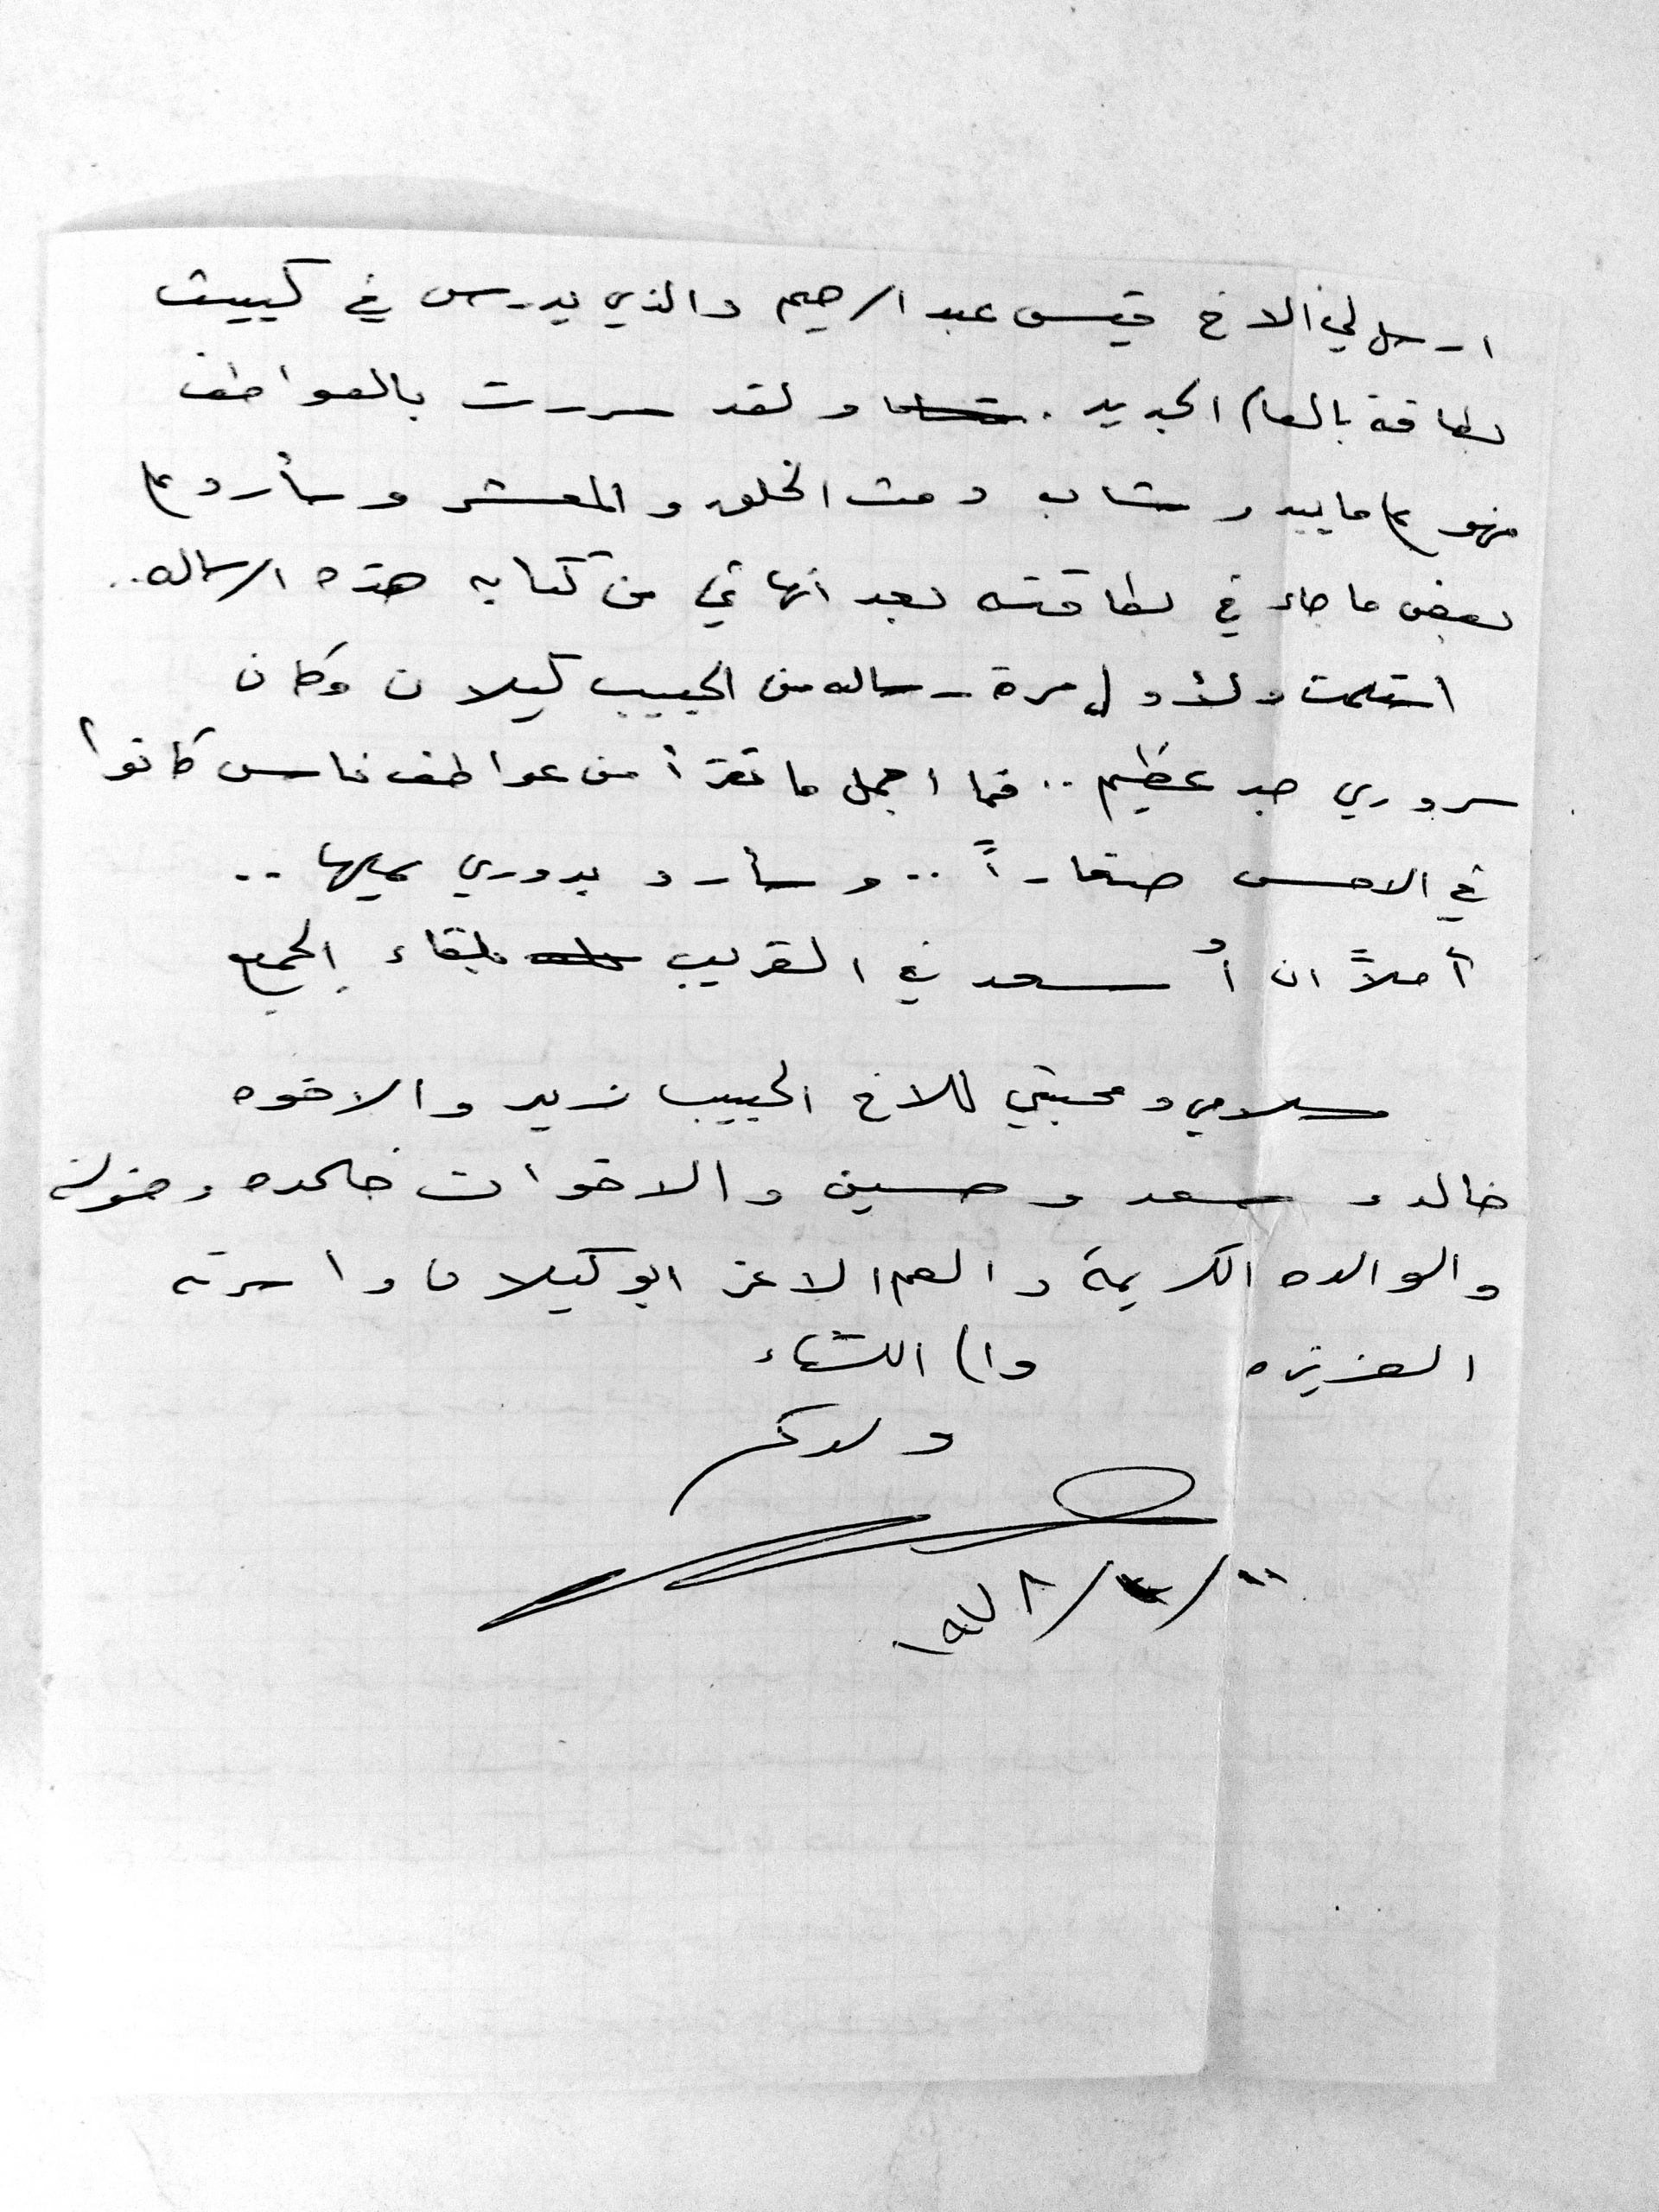 ارسل لي الاخ قيس عبد الرحيم والذي يدرس في كييف
بطاقة بالعام الجديد . ولقد سررت بالعواطف
فهو على ما يبدو شاب دمث الخلق والمعشر وسأرد على
بعض ما جاء في بطاقته بعد انهائي من كتابه هذه الرساله ..
استلمت ولأول مرة رساله من الحبيب كيلان وكان
سروري جد عظيم .. فما اجمل ما تقرأ من عواطف ناس كانوا
في الامس صغاراً .. وسأرد بدوري عليها ..
أملاً ان أُسعد في القريب بلقاء الجميع
سلامي ومحبتي للاخ الحبيب زيد والاخوه
خالد و سعد وحسين والاخوات خالده وخولة
والوالده الكريمة والعم الاعز ابو كيلان واسرته
العزيزه والى اللقاء
ولدكم
١٩٧٨